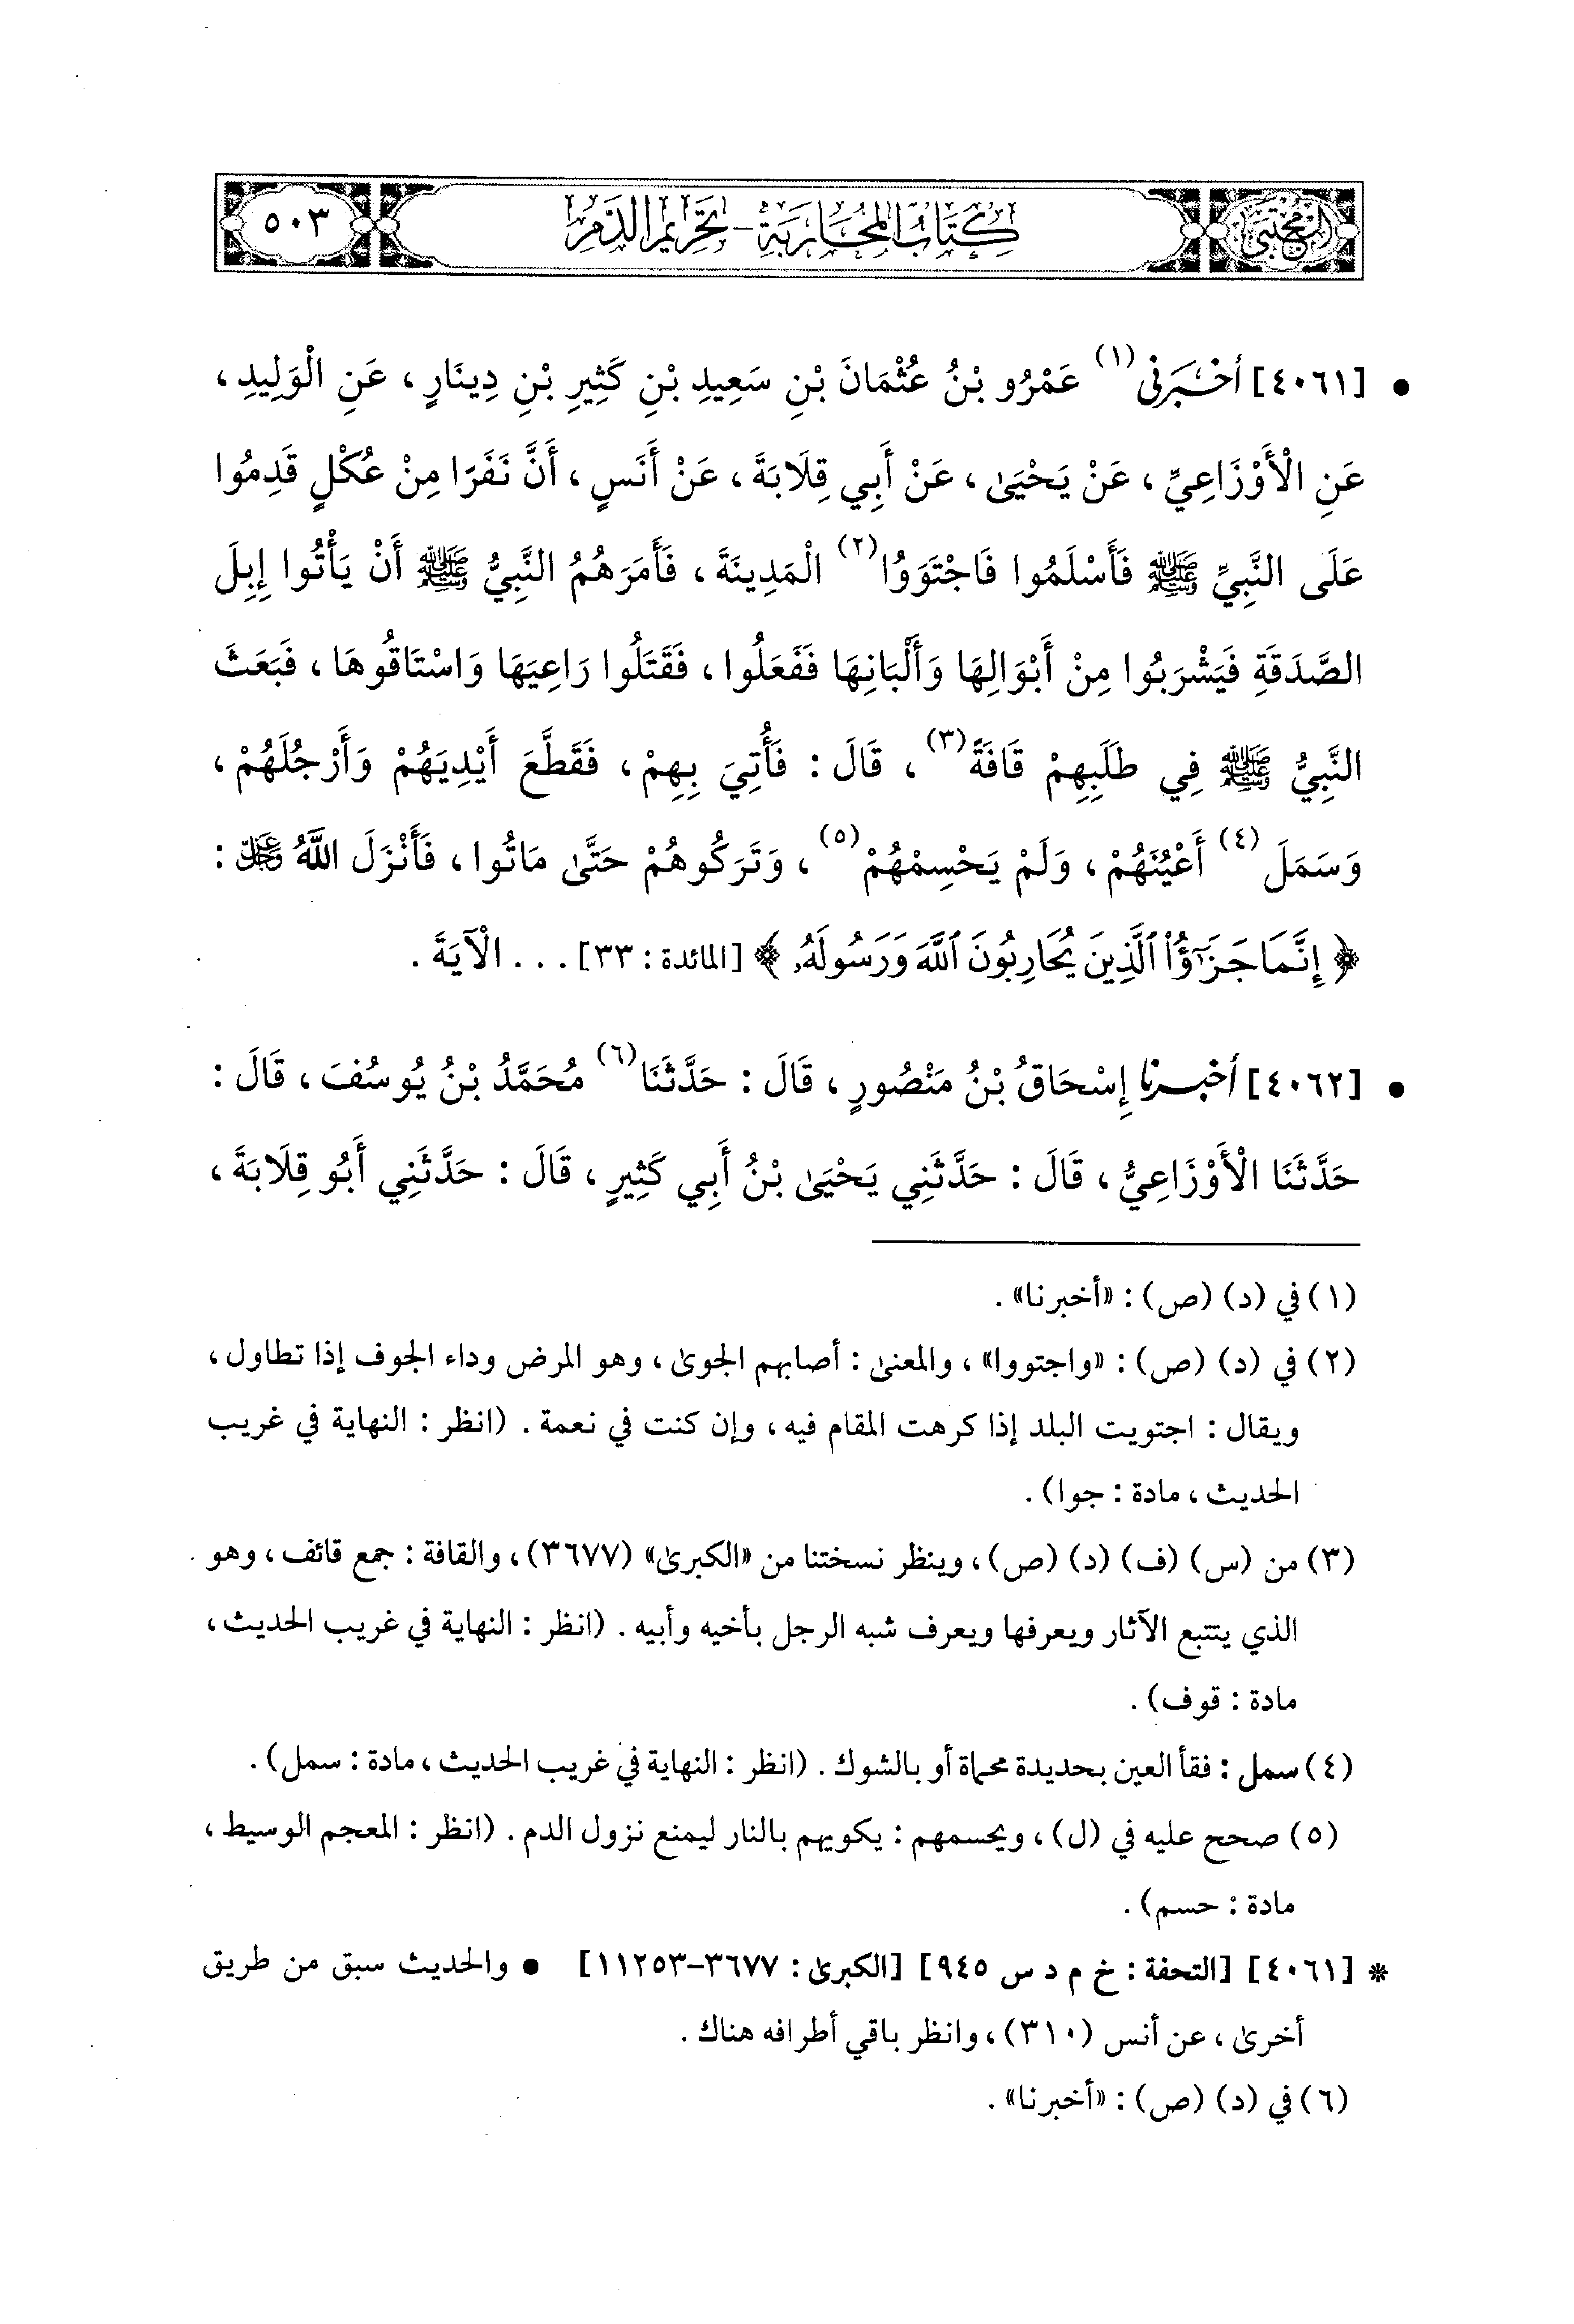 المجتبى
كتاب المحاربة - تحريم الدم
٥٠٣
• [٤٠٦١] أخبرني(١) عَمْرُو بْنُ عُثْمَانَ بْنِ سَعِيدِ بْنِ كَثِيرِ بْنِ دِينَارٍ، عَنِ الْوَلِيدِ،
عَنِ الْأَوْزَاعِيِّ، عَنْ يَحْيَىٰ، عَنْ أَبِي قِلَابَةَ، عَنْ أَنَسٍ، أَنَّ نَفَرًا مِنْ عُكْلٍ قَدِمُوا
عَلَى النَّبِيِّ ﷺ فَأَسْلَمُوا فَاجْتَوَوُا(٢) الْمَدِينَةَ، فَأَمَرَهُمُ النَّبِيُّ ﷺ أَنْ يَأْتُوا إِبِلَ
الصَّدَقَةِ فَيَشْرَبُوا مِنْ أَبْوَالِهَا وَأَلْبَانِهَا فَفَعَلُوا، فَقَتَلُوا رَاعِيَهَا وَاسْتَاقُوهَا، فَبَعَثَ
النَّبِيُّ ﷺ فِي طَلَبِهِمْ قَافَةً(٣)، قَالَ: فَأُتِيَ بِهِمْ، فَقَطَّعَ أَيْدِيَهُمْ وَأَرْجُلَهُمْ،
وَسَمَلَ(٤) أَعْيُنَهُمْ، وَلَمْ يَحْسِمْهُمْ(٥)، وَتَرَكُوهُمْ حَتَّىٰ مَاتُوا، فَأَنْزَلَ اللَّهُ عَزَّ وَجَلَّ:
﴿إِنَّمَا جَزَٰٓؤُا۟ ٱلَّذِينَ يُحَارِبُونَ ٱللَّهَ وَرَسُولَهُۥ﴾ [المائدة: ٣٣]... الْآيَةَ.
• [٤٠٦٢] أخبرنا إِسْحَاقُ بْنُ مَنْصُورٍ، قَالَ: حَدَّثَنَا(٦) مُحَمَّدُ بْنُ يُوسُفَ، قَالَ:
حَدَّثَنَا الْأَوْزَاعِيُّ، قَالَ: حَدَّثَنِي يَحْيَىٰ بْنُ أَبِي كَثِيرٍ، قَالَ: حَدَّثَنِي أَبُو قِلَابَةَ،
(١) في (د) (ص): «أخبرنا».
(٢) في (د) (ص): «واجتووا»، والمعنىٰ: أصابهم الجوىٰ، وهو المرض وداء الجوف إذا تطاول،
ويقال: اجتويت البلد إذا كرهت المقام فيه، وإن كنت في نعمة. (انظر: النهاية في غريب
الحديث، مادة: جوا).
(٣) من (س) (ف) (د) (ص)، وينظر نسختنا من «الكبرىٰ» (٣٦٧٧)، والقافة: جمع قائف، وهو
الذي يتتبع الآثار ويعرفها ويعرف شبه الرجل بأخيه وأبيه. (انظر: النهاية في غريب الحديث،
مادة: قوف).
(٤) سمل: فقأ العين بحديدة محماة أو بالشوك. (انظر: النهاية في غريب الحديث، مادة: سمل).
(٥) صحح عليه في (ل)، ويحسمهم: يكويهم بالنار ليمنع نزول الدم. (انظر: المعجم الوسيط،
مادة: حسم).
* [٤٠٦١] [التحفة: خ م د س ٩٤٥] [الكبرىٰ: ٣٦٧٧-١١٢٥٣] • والحديث سبق من طريق
أخرىٰ، عن أنس (٣١٠)، وانظر باقي أطرافه هناك.
(٦) في (د) (ص): «أخبرنا».